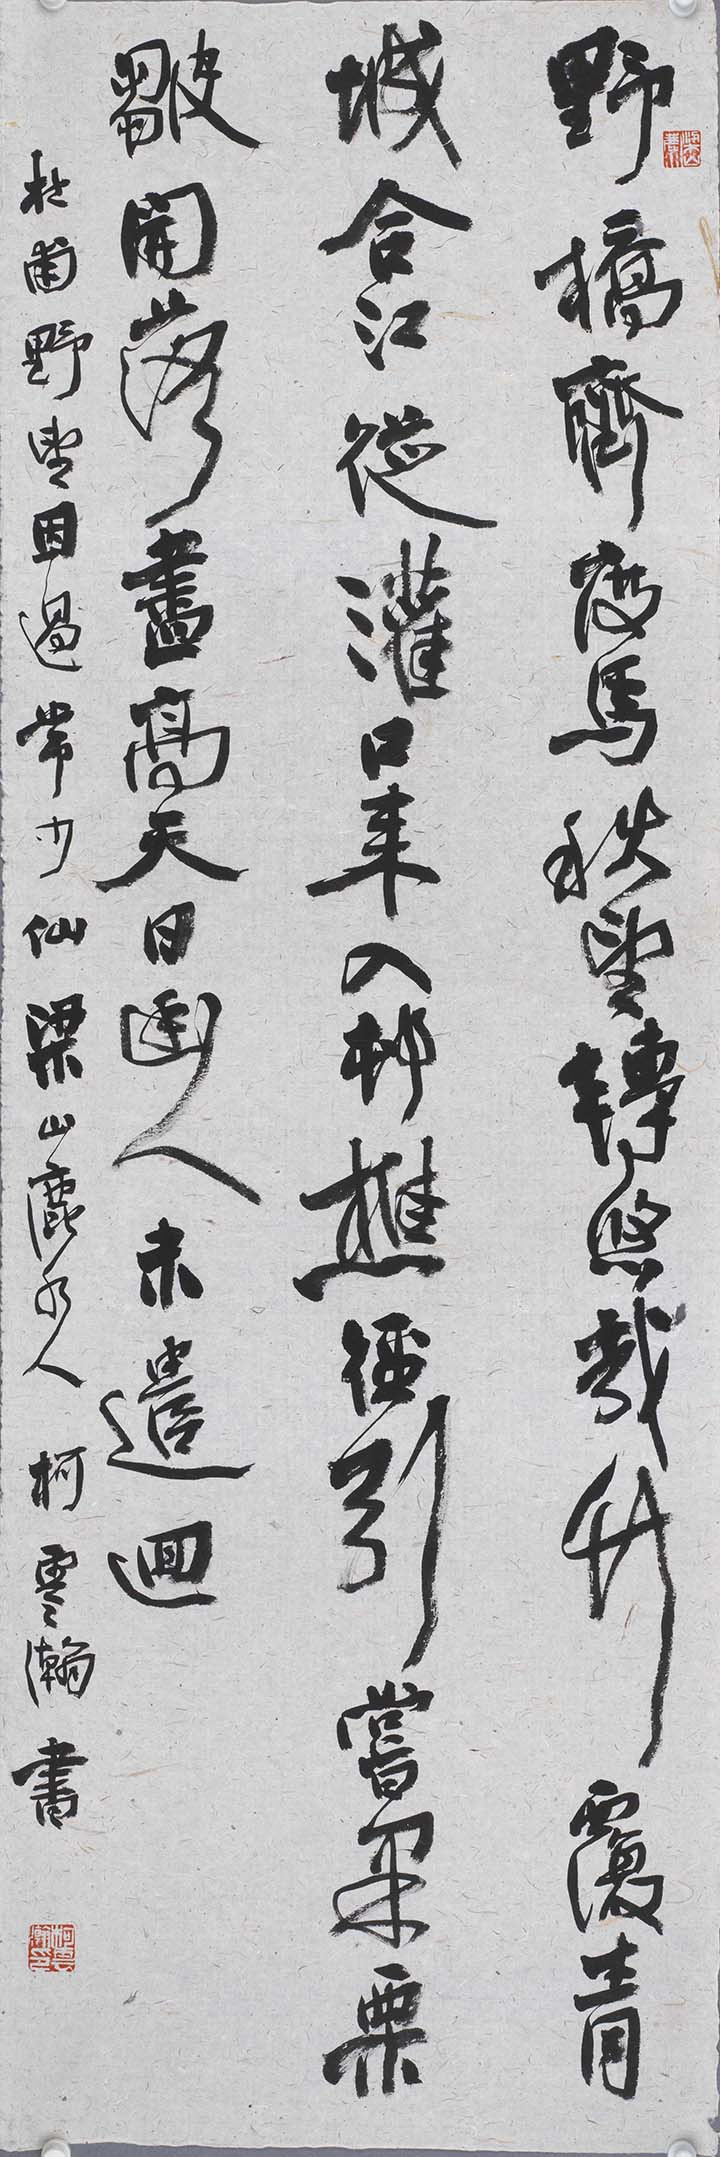 野橋齊度馬秋望轉悠哉竹覆青
城合江從灌口來入邨樵徑引嘗果栗
皺開落盡高天日幽人未遣迴
杜甫野望因過常少仙梁山人柯雲瀚書
柯雲瀚印